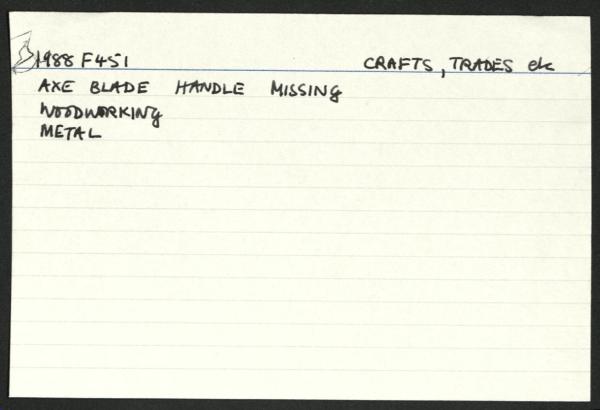 1988 F451 CRAFTS, TRADES etc
AXE BLADE HANDLE MISSING
WOODWORKING
METAL